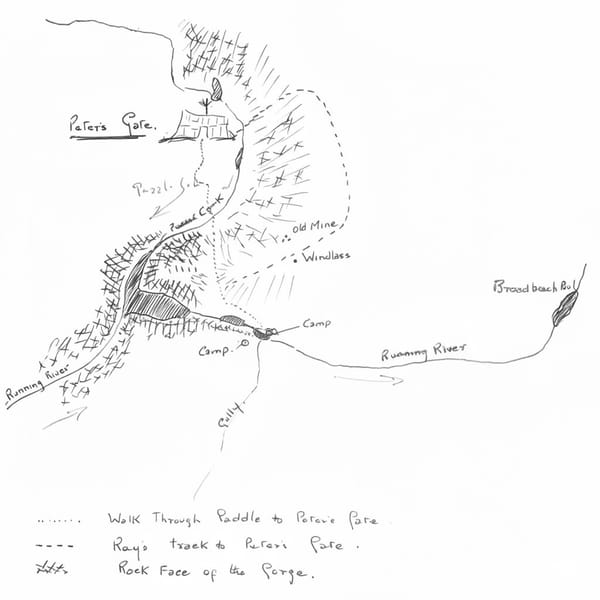 Peter's Gate.
Creek
Old Mine
Windlass
Broadbeach Pool
Camp
Camp.
Running River
Running River
Gully
Walk Through Paddle to Peter's Gate.
Ray's track to Peter's Gate.
Rock Face of the Gorge.